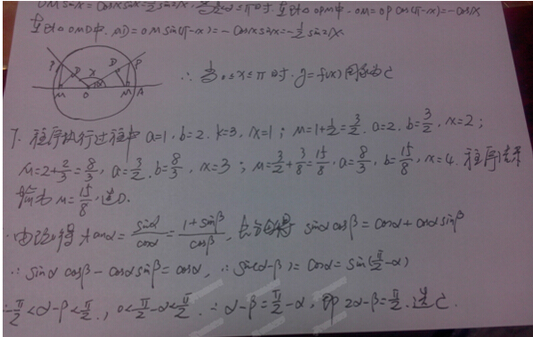 OM sinx = cosx sinx = ½ sin2x, 当 π/2 ≤ x ≤ π 时, 在Rt△OPM中, OM = OP cos(π-x) = -cosx
在Rt△OMD中, MD = OM sin(π-x) = -cosx sinx = -½ sin2x.
P D X D P
M O M A
∴ 当 0≤x≤π 时, y=f(x) 图象为C
7. 程序执行过程中 a=1, b=2, k=3, n=1; M=1+½=3/2, a=2, b=3/2, n=2;
M=2+2/3=8/3, a=3/2, b=8/3, n=3; M=3/2+3/8=15/8, a=8/3, b=15/8, n=4. 程序结束
输出 M=15/8, 选D.
由已知得 tanα = sinα/cosα = (1+sinβ)/cosβ, sinα cosβ = cosα + cosα sinβ
∴ sinα cosβ - cosα sinβ = cosα, ∴ sin(α-β) = cosα = sin(π/2-α)
∵ -π/2 < α-β < π/2, 0 < π/2-α < π/2. ∴ α-β = π/2-α, 即 2α-β = π/2. 选C.